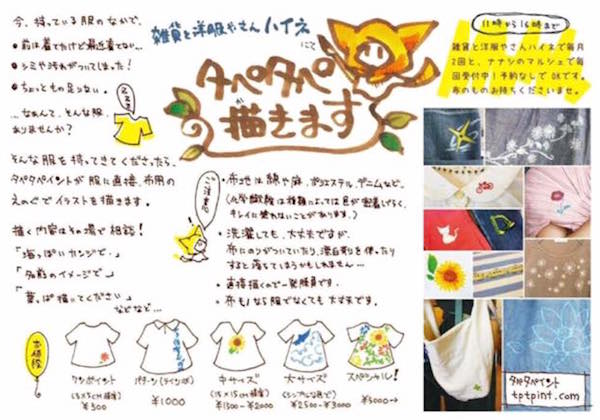 今、持っている服のなかで、
・前は着てたけど最近着てない…
・シミや汚れがついてしまった!
・ちょっともの足りない。
たとえば
…なぁんて、そんな服、
ありませんか?
そんな服を持ってきてくださったら、
タペタペイントが服に直接、布用の
えのぐでイラストを描きます。
描く内容はその場で相談!
「海っぽいカンジで…」
「多穀のイメージで…」
「葉っぱ描いてください」
などなど…
雑貨と洋服やさん ハイネ
にて
タペタペ
描きます
11時から16時まで
雑貨と洋服やさんハイネで毎月
2回と、ナナシのマルシェで毎
回受付中!予約なしでOKです。
布のものお持ちくださいませ。
ご注意
・布地は綿や麻、ポリエステル、デニムなど。
(化学繊維は種類によっては色が密着しづらく、
キレイに描けないことがあります。)
・洗濯しても、大丈夫ですが、
布にのりがついていたり、漂白剤を使ったり
すると落ちてしまうかもしれません…
・直接描くので一発勝負です。
・布モノなら服でなくても大丈夫です。
お値段
ワンポイント
(5×5cm程度)
¥500
パターン(ライン状)
¥1000
中サイズ
(15×15cm程度)
¥1500-¥2000
大サイズ
(シンプルな図で)
¥2500-¥3000
スペシャル!
¥5000→
タペタペイント
tptpint.com